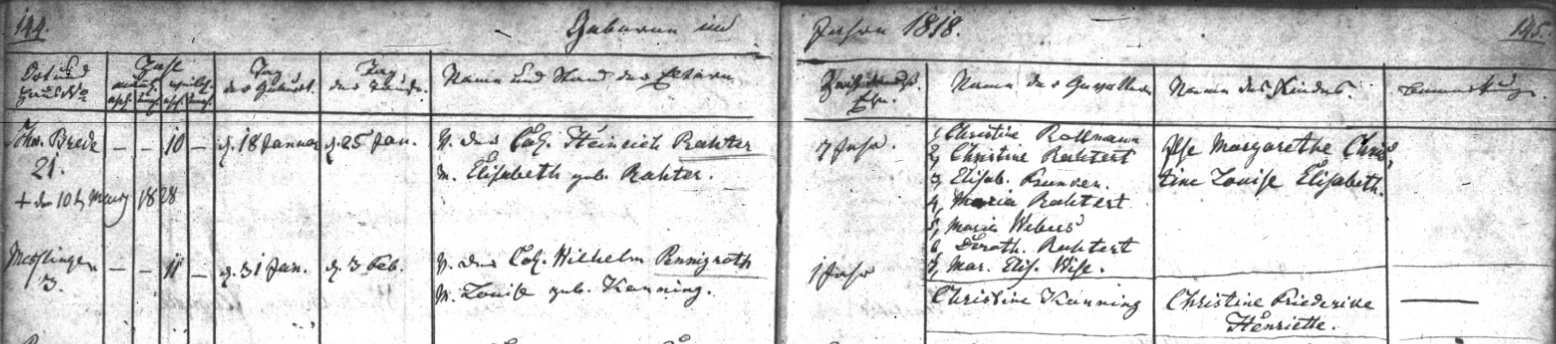 144.
Geboren im
Jahre 1818.
145.
Ort und
Haus No
Zahl
ehel. unehl. ehel. unehl.
Tag
der Geburt.
Tag
der Taufe.
Name und Stand der Eltern
Name der Gevattern
Name des Kindes.
Bemerkung.
Brede
21.
+ den 10t, 1828
— — 10 —
d. 18 Januar
d. 25 Jan.
V. der Col. Heinrich Rahter
M. Elisabeth geb. Rahter.
7 Jahr.
1, Christine Rollmann
2, Christine Rahtert
3, Elisab.
4, Maria Rahtert
5, Maria Webers
6, Doroth. Rahtert
7, Mar. Elis. Wise.
Ilse Margarethe Chris
tine Louise Elisabeth.
Messlingen
3.
— — 11 —
d. 31 Jan.
d. 3 Feb.
V. der Col. Wilhelm Pennigroth
M. Louise geb. Kanning.
1 Jahr
Christine Kanning
Christine Friederike
Henriette.
—